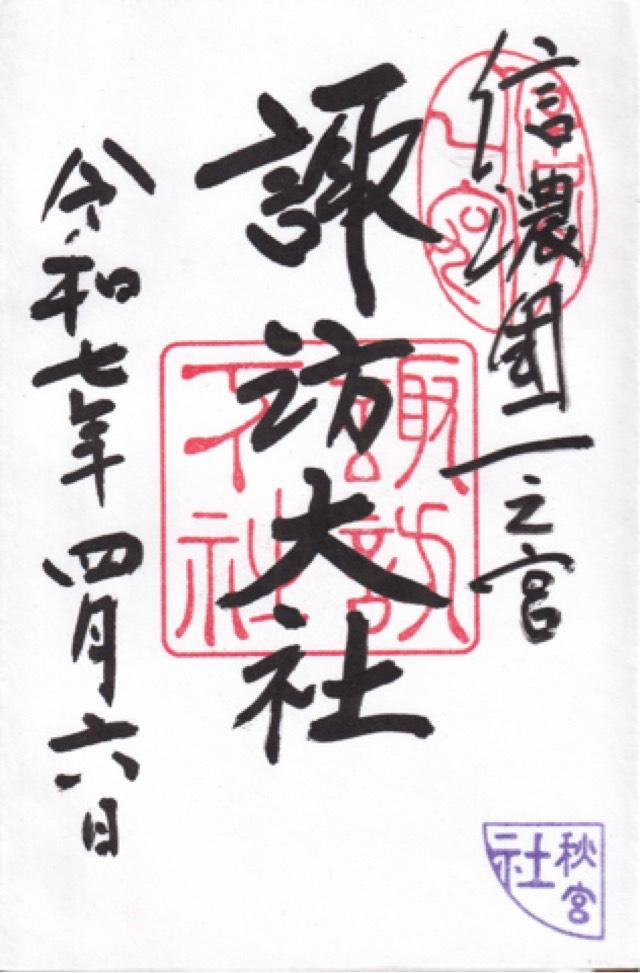 信濃國一之宮
諏訪大社
令和七年四月六日
諏訪
大社
秋宮
社